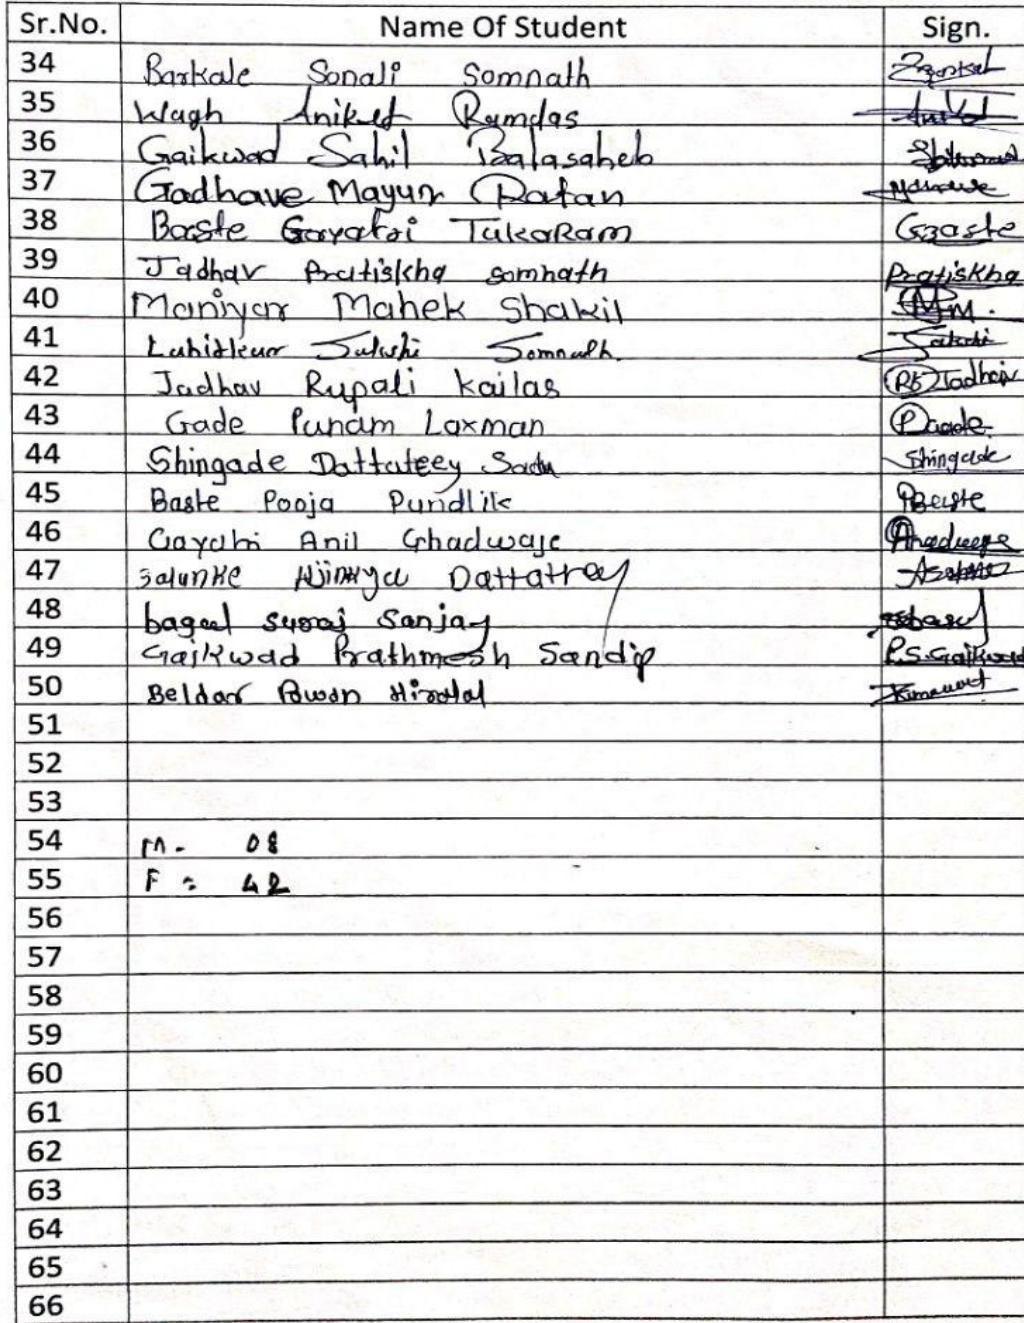 Sr.No. Name Of Student Sign.
34 Barkale Sonali Somnath
35 Wagh Aniket Ramdas Aniket
36 Gaikwad Sahil Balasaheb
37 Gadhave Mayur Ratan
38 Baste Gayatri TukaRam GBaste
39 Jadhav Pratiskha somnath Pratiskha
40 Maniyar Mahek Shakil
41 Sakshi Somnath. Sakshi
42 Jadhav Rupali Kailas RK Jadhav
43 Gade Punam Laxman PGade.
44 Shingade Dattateey Sadu Shingade
45 Baste Pooja Pundlik PBaste
46 Gayatri Anil Ghadwaje
47 Salunke Ajinkya Dattatray
48 bagul suraj Sanjay
49 Gaikwad Prathmesh Sandip P.S.Gaikwad
50 Beldar Pawan Hiralal
51
52
53
54 M - 08
55 F = 42
56
57
58
59
60
61
62
63
64
65
66